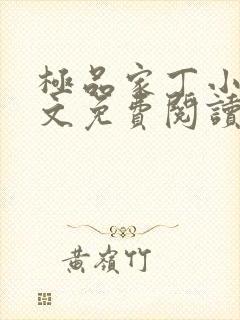 極品家丁小
文免費閱讀
黃嶺竹